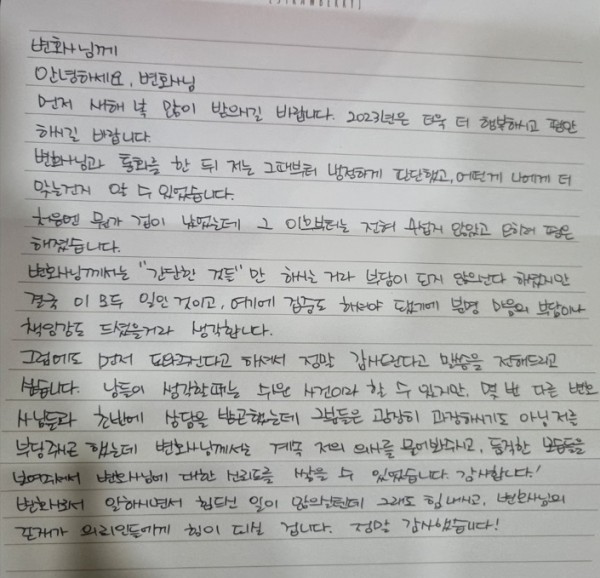 [STRAWBERRY]
변호사님께
안녕하세요, 변호사님
먼저 새해 복 많이 받으시길 바랍니다. 2023년은 더욱 더 행복하시고 평안
하시길 바랍니다.
변호사님과 통화를 한 뒤 저는 그때부터 냉정하게 판단했고, 어떤게 나에게 더
맞는건지 알 수 있었습니다.
처음엔 뭔가 겁이 났었는데 그 이후부터는 전혀 무섭지 않았고 오히려 평온
해졌습니다.
변호사님께서는 "간단한 것들"만 하시는 거라 부담이 되지 않으신다 하셨지만
결국 이 모두 일인 것이고, 여기에 검증도 하셔야 했기에 분명 마음의 부담이나
책임감도 드셨을거라 생각합니다.
그럼에도 먼저 도와주신다고 하셔서 정말 감사드린다고 말씀을 전해드리고
싶습니다. 남들이 생각할때는 쉬운 사건이라 할 수 있지만, 몇 번 다른 변호
사님들과 초반에 상담을 받곤했는데 그분들은 굉장히 과장하시기도 아님 저를
부담주려고 했는데 변호사님께서는 계속 저의 의사를 물어봐주시고, 동작한 모습들을
보여주셔서 변호사님에 대한 신뢰도를 쌓을 수 있었습니다. 감사합니다!
변호사로서 일하시면서 힘드신 일이 많으실텐데 그래도 힘내시고, 변호사님의
존재가 의뢰인들에게 힘이 되실 겁니다. 정말 감사했습니다!